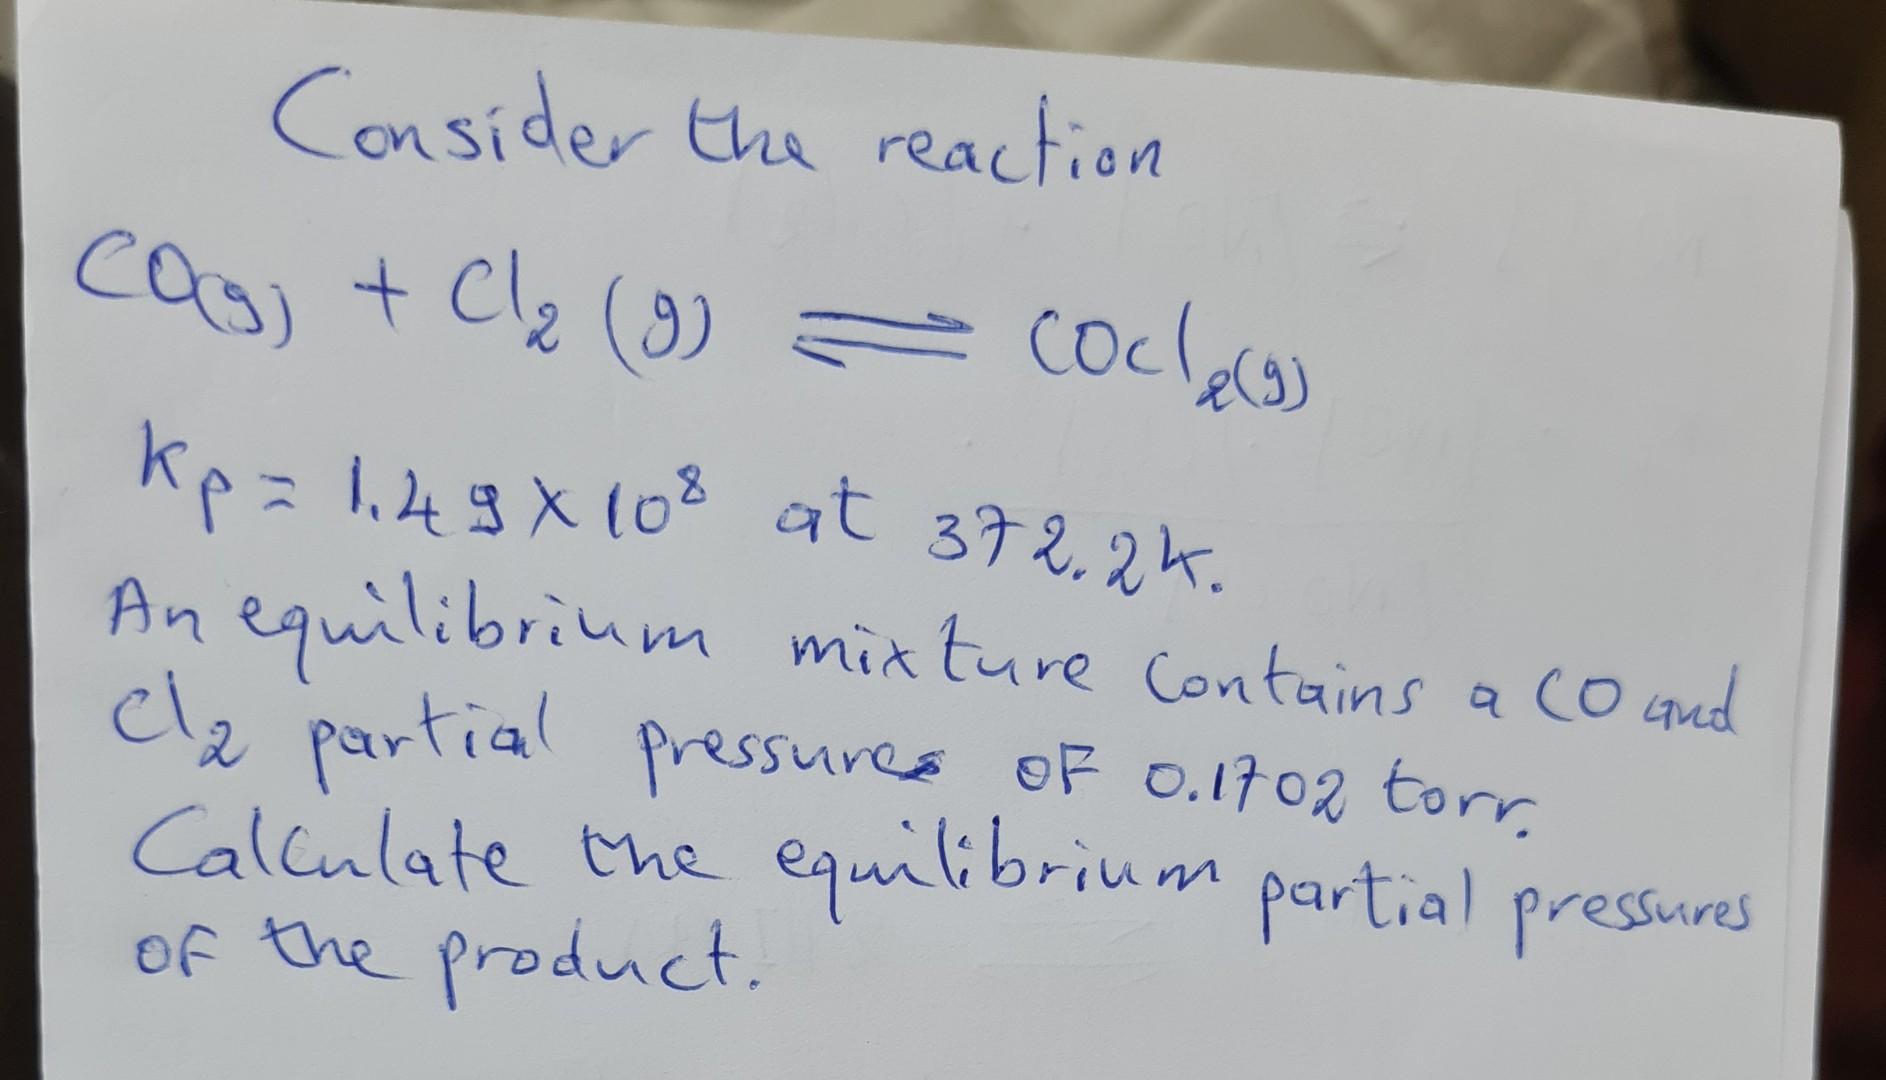 Consider the reaction
CO(g) + Cl₂ (g) ⇌ COCl₂(g)
Kp = 1.49 × 10⁸ at 372.2K.
An equilibrium mixture contains a CO and
Cl₂ partial pressures of 0.1702 torr.
Calculate the equilibrium partial pressures
of the product.